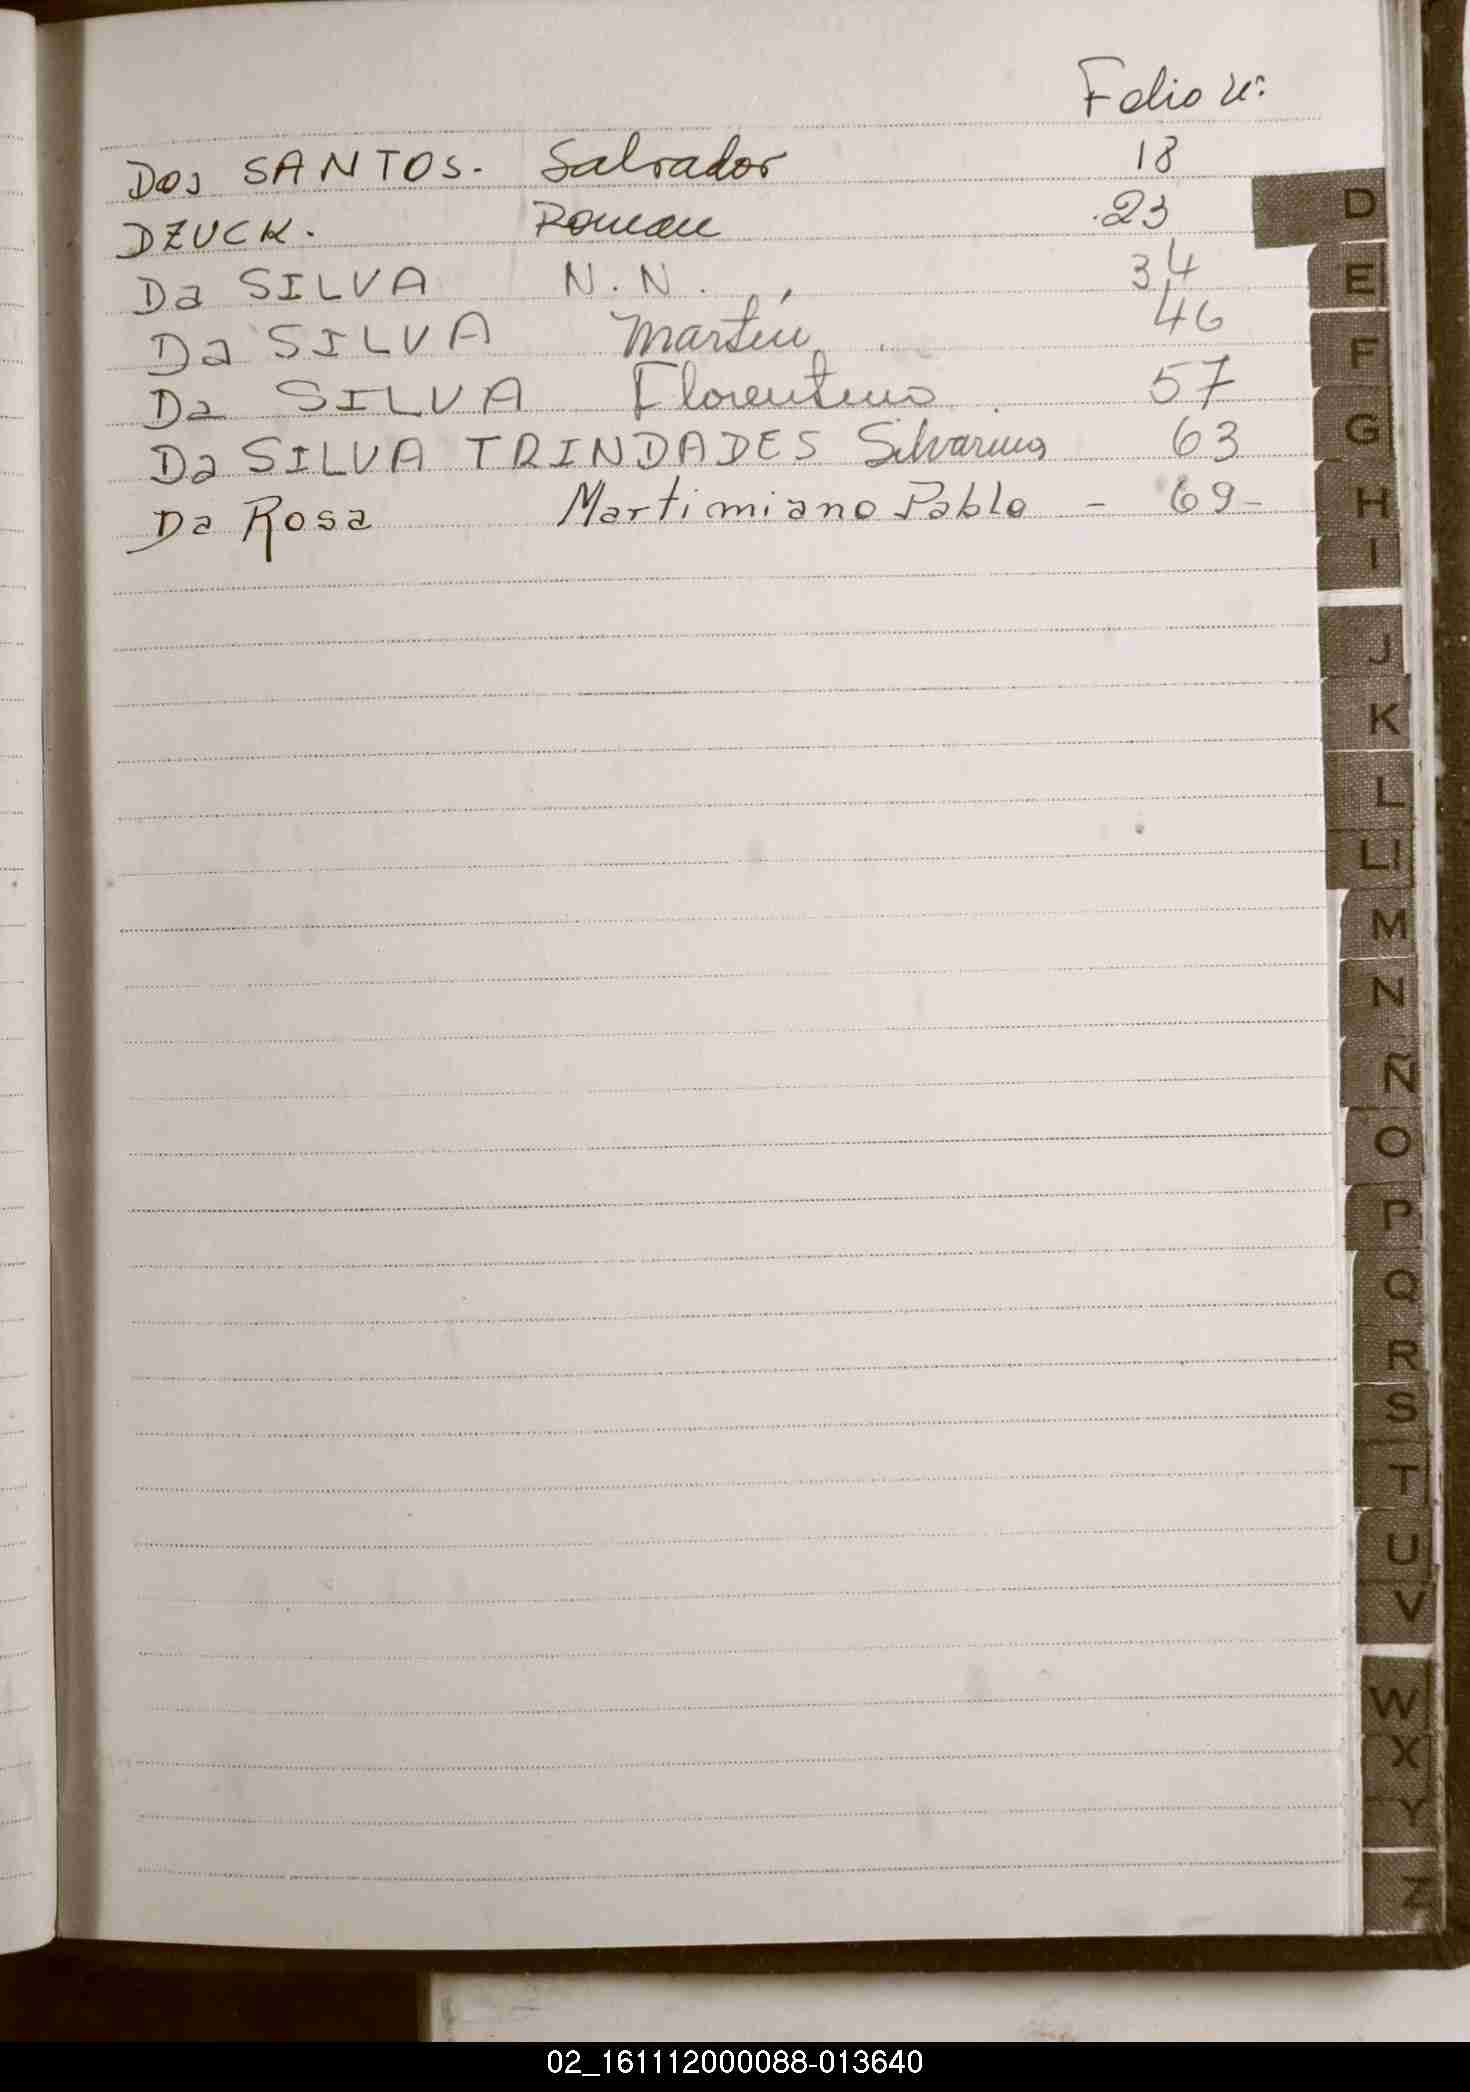 Folio Nº
DOS SANTOS. Salvador 18
DZUCK. Roman 23
Da SILVA N. N. 34
Da SILVA Martín 46
Da SILVA Florentino 57
Da SILVA TRINDADES Silvarino 63
Da Rosa Martimiano Pablo - 69-
D
E
F
G
H
I
J
K
L
LL
M
N
Ñ
O
P
Q
R
S
T
U
V
W
X
Y
Z
02_161112000088-013640